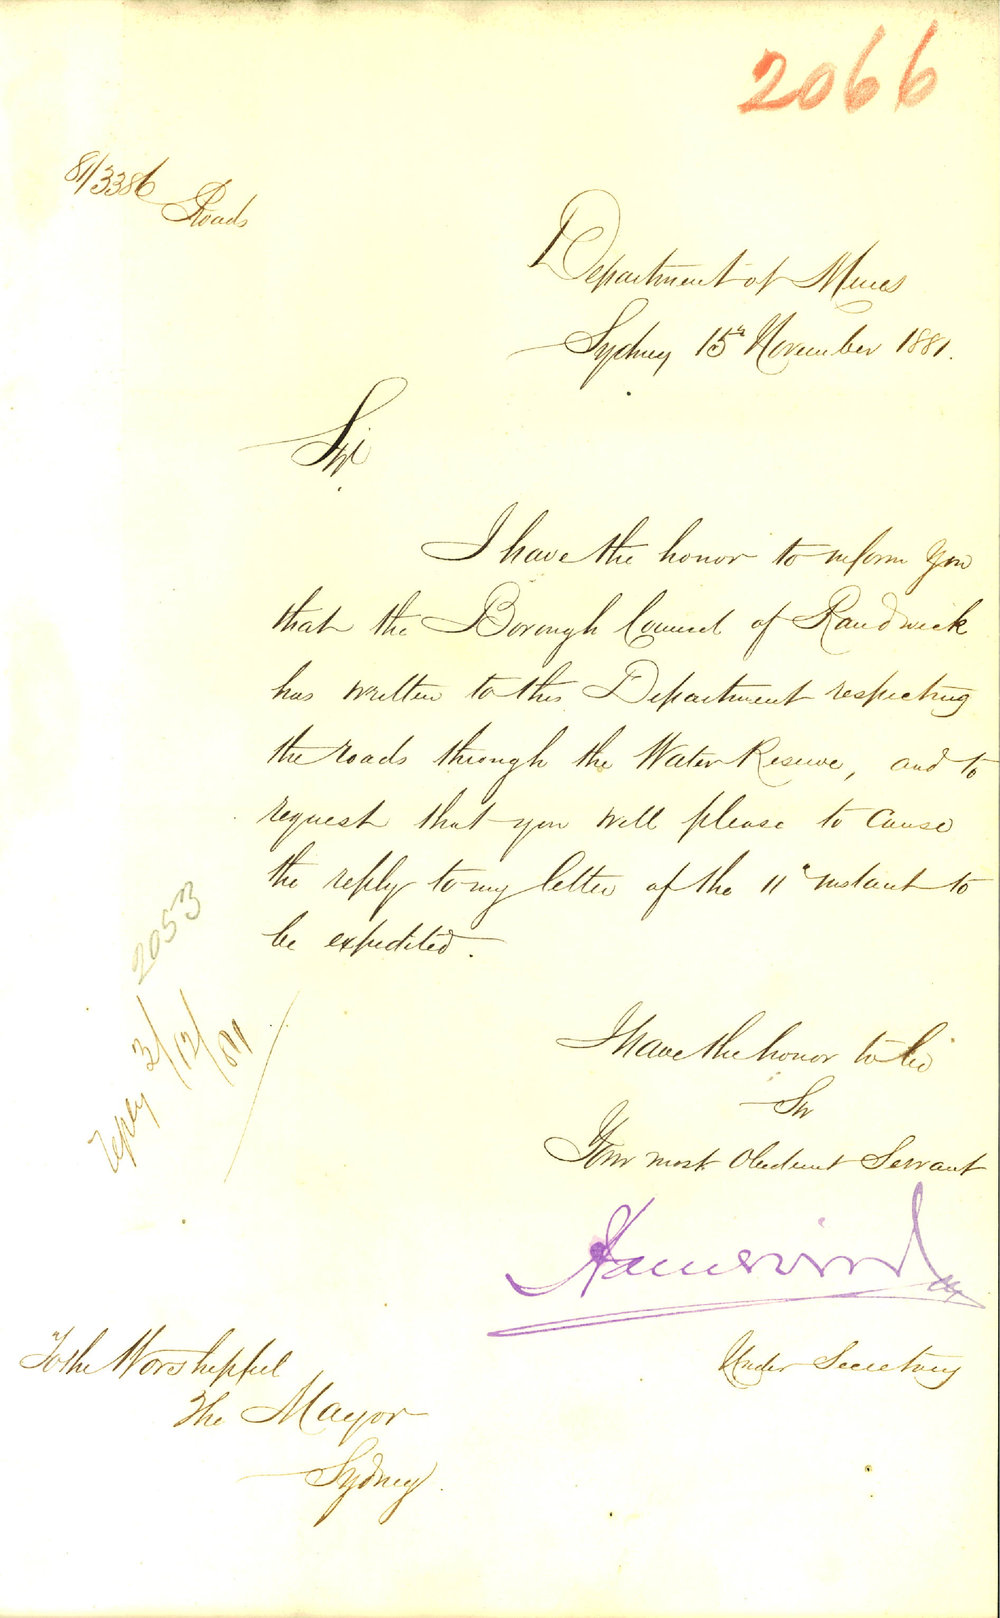 2066
81/3386 Roads
Department of Mines
Sydney 15th November 1881.
Sir
I have the honor to inform you
that the Borough Council of Randwick
has written to this Department respecting
the roads through the Water Reserve, and to
request that you will please to cause
the reply to my letter of the 11th instant to
be expedited.
2053
reply 3/12/81
I have the honor to be
Sir
Your most Obedient Servant
Under Secretary
To the Worshipful
The Mayor
Sydney.